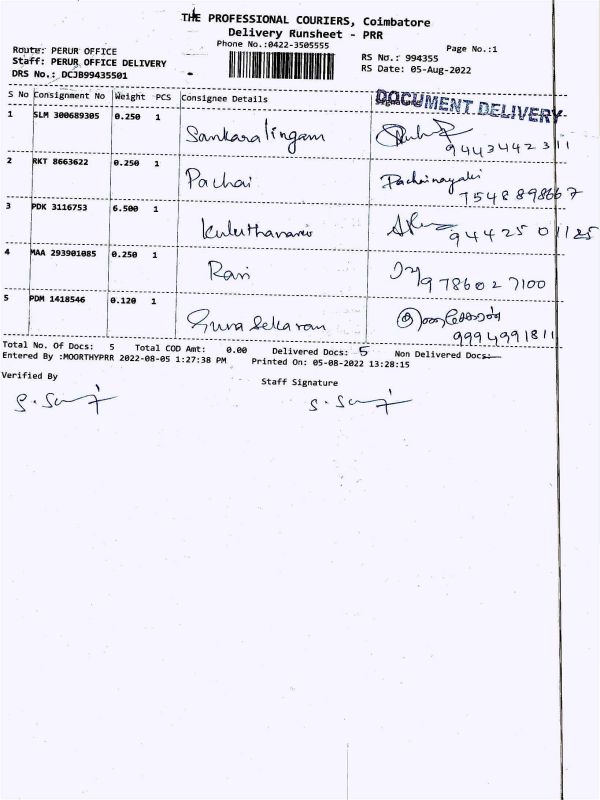 THE PROFESSIONAL COURIERS, Coimbatore
Delivery Runsheet - PRR
Phone No.:0422-3505555
Page No.:1
Route: PERUR OFFICE
RS No.: 994355
Staff: PERUR OFFICE DELIVERY
RS Date: 05-Aug-2022
DRS No.: DCJB99435501
S No Consignment No Weight PCS Consignee Details
DOCUMENT DELIVERY
1 SLM 300689305 0.250 1 Sankaralingam
9443442311
2 RKT 8663622 0.250 1 Pachai Pachainayaki
7548898667
3 PDK 3116753 6.500 1
9442501125
4 MAA 293901085 0.250 1 Ravi 9786027100
5 PDM 1418546 0.120 1 Guna Sekaran குணசேகரன்
9994991811
Total No. Of Docs: 5 Total COD Amt: 0.00 Delivered Docs: 5 Non Delivered Docs:
Entered By :MOORTHYPRR 2022-08-05 1:27:38 PM Printed On: 05-08-2022 13:28:15
Verified By
Staff Signature